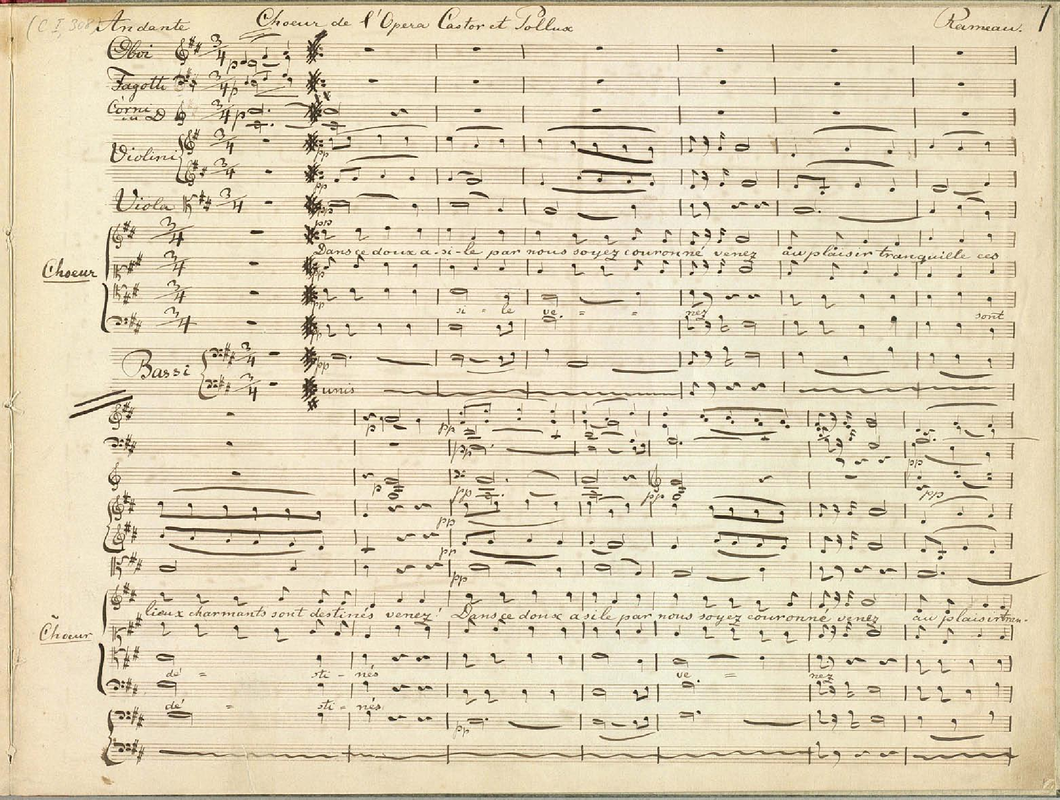 Andante Choeur de l'Opera Castor et Pollux Rameau. 1
Oboi 3/4 p
Fagotti 3/4 p
Corni in D 3/4 p
Violini 3/4 pp
3/4 pp
Viola 3/4 pp
Choeur 3/4 pp
Dans ce doux a-si-le par nous soyez couronné venez au plaisir tranquille ces
3/4
3/4
si - le ve - - nez sont
3/4
Bassi 3/4 pp
3/4 unis
p pp
pp pp
p pp pp pp
pp
pp
pp
Choeur
lieux charmants sont destinés venez! Dans ce doux asile par nous soyez couronné venez au plaisir tran-
dé - sti - nés ve - nez
dé - sti - nés
pp